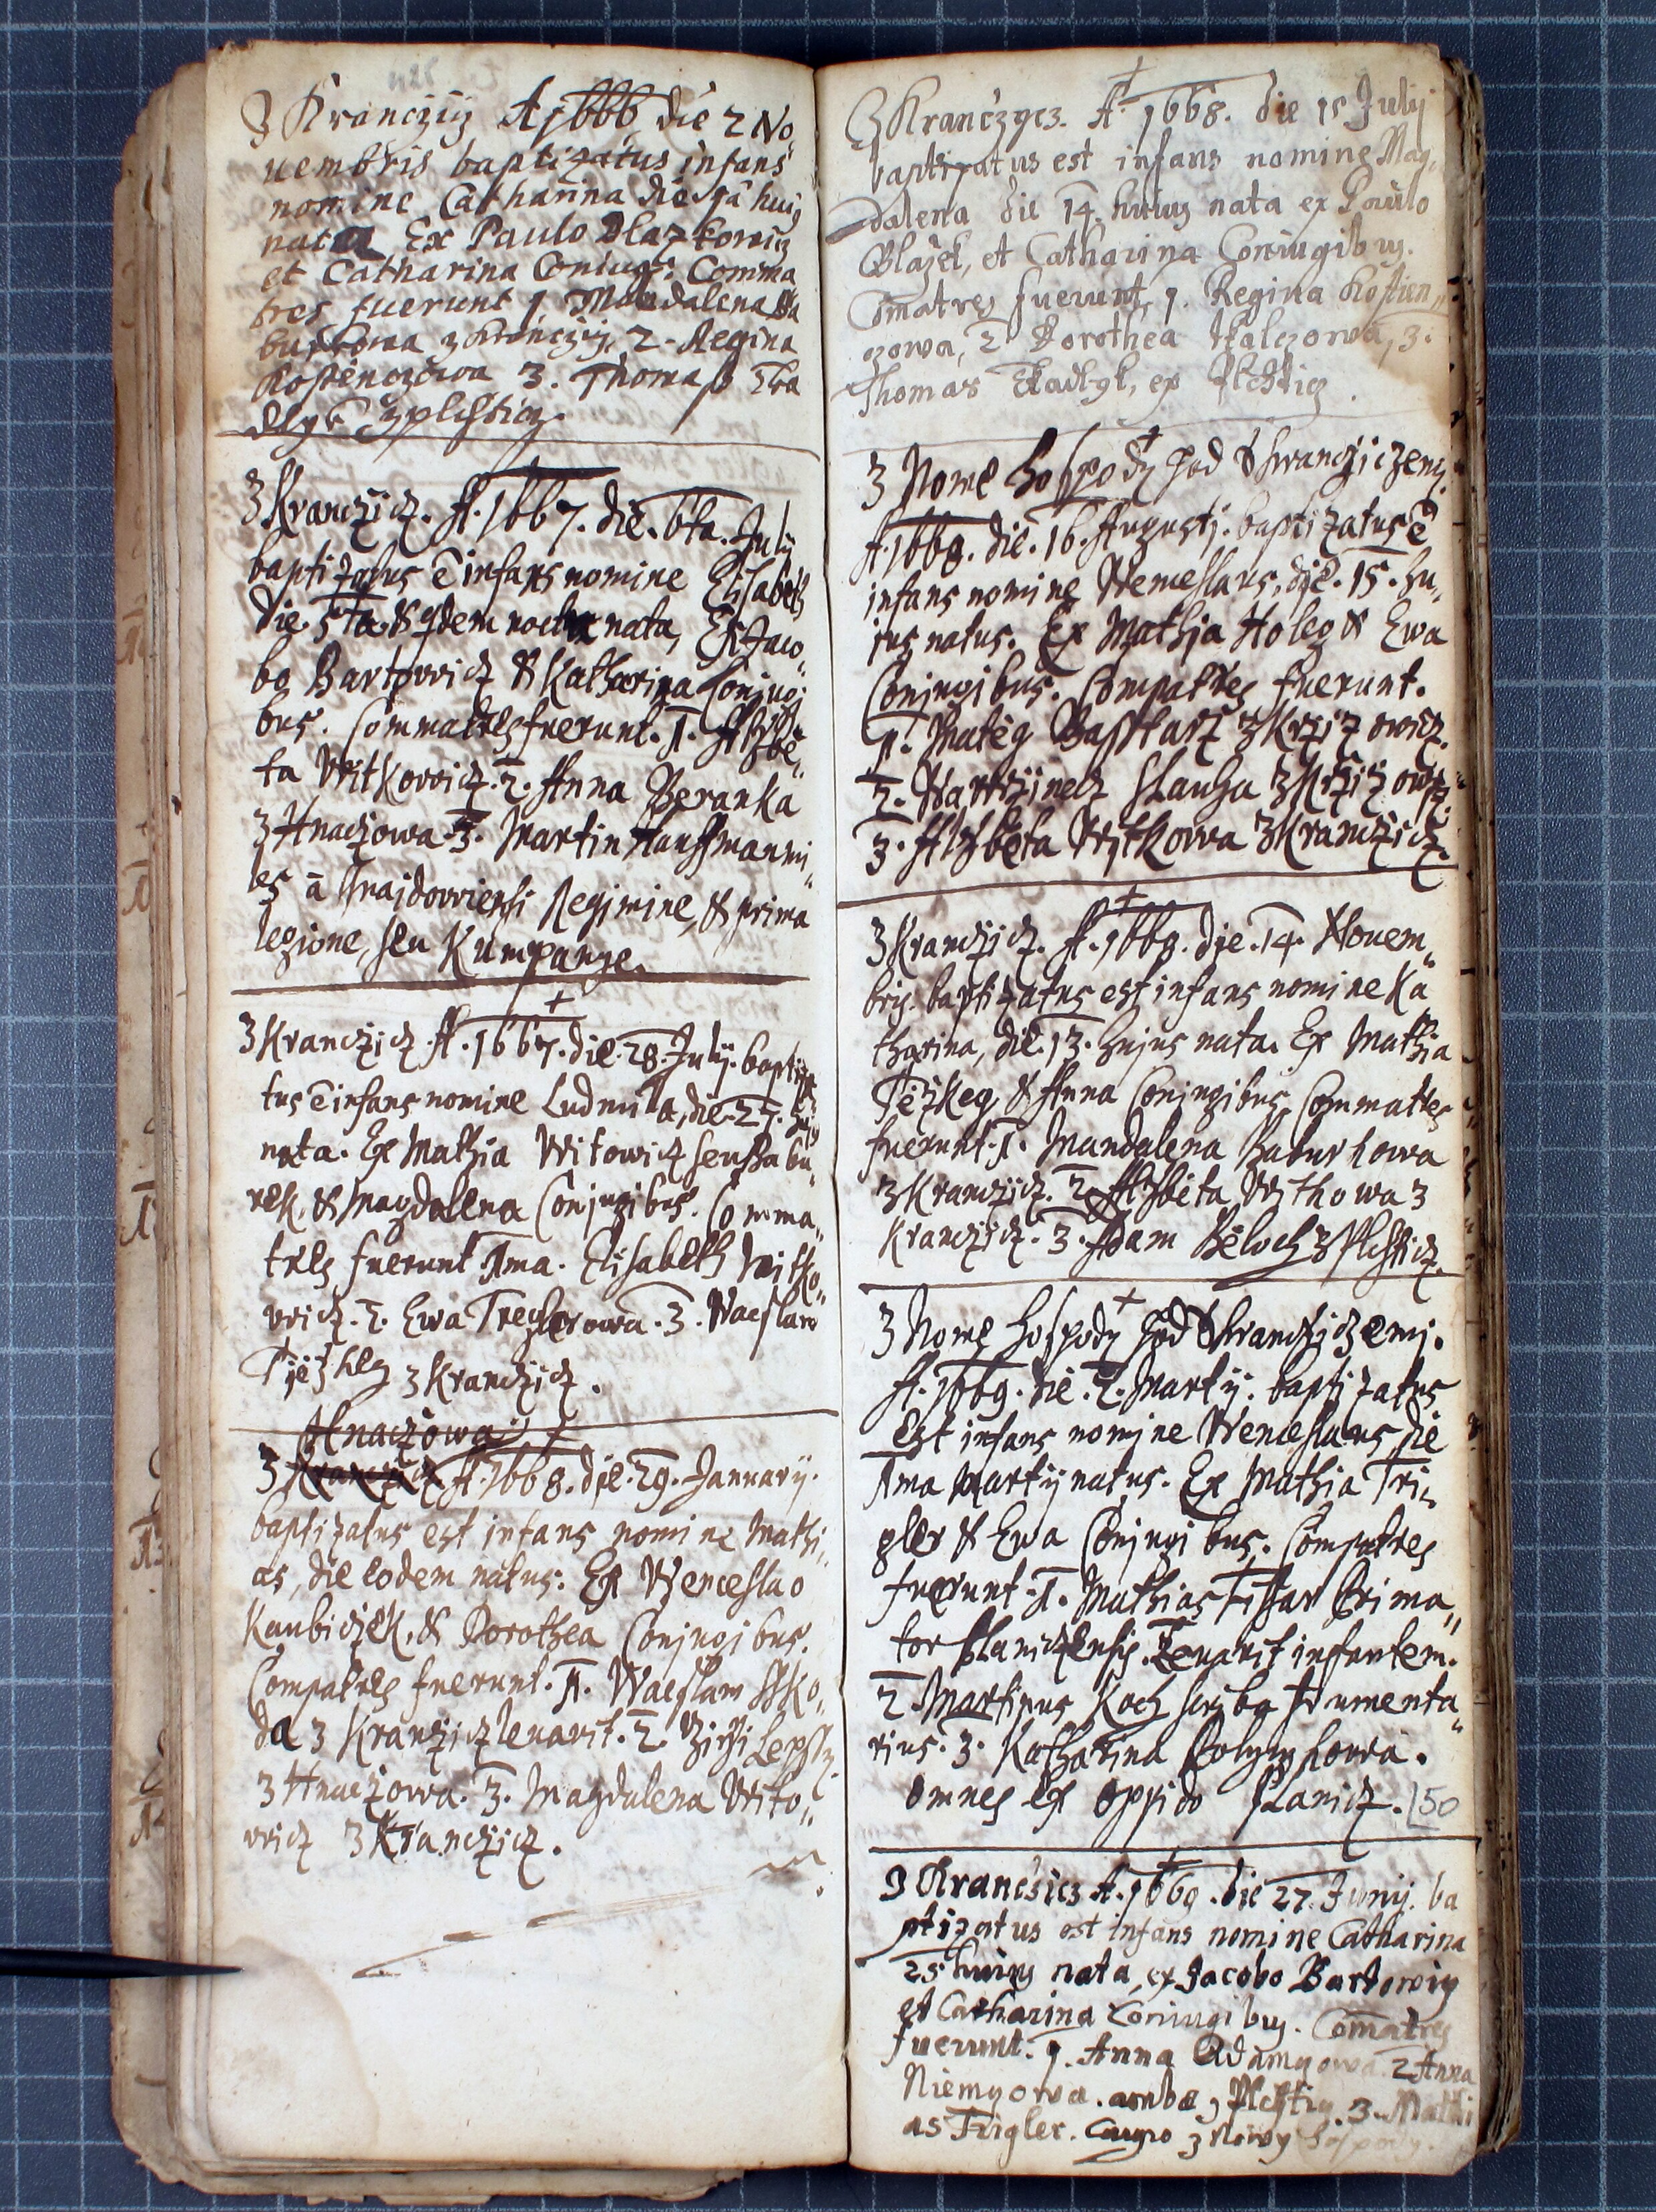 Z Kranczicz A 1666 die 2 No
uembris baptizatus infans
nomine Catharina die 1a huius
nata Ex Paulo Blazkowicz
et Catharina Coniugi: Comma
tres fuerunt 1 Mandalena Ba
burkowa z Kranczicz, 2. Regina
Kostenczowa 3. Thomaß Tka
dlyk z Plchticz.
Z Kranczicz. A. 1667. die. 6ta. July
baptizatus ē infans nomine Elisabeth
die. 5ta. & qdem nocte nata, Ex Jaco„
bo Bartowicz & Katharina Conjugi
bus. Commatres fuerunt. 1. Alzbě„
ta Witkowicz. 2. Anna Beranka
z Hnaczowa 3. Martin Hauffman mi„
les ā Traidowiensi Regimine, & prima
legione, seu Kumpanye.
Z Kranczicz. A. 1667. die. 28. July. baptiza
tus ē infans nomine Ludmila, die. 27. huius
nata. Ex Mathia Witowicz seu Babu„
rek, & Magdalena Conjugibus. Comma„
tres fuerunt 1ma. Elisabeth Witko„
wicz. 2. Ewa Treglerowa. 3. Waczlaw
Tiežkey z Kranczicz.
Hnaczowa
Z Kranczicz A. 1668. die. 29. January.
baptizatus est infans nomine Mathi„
as, die eodem natus: Ex Wenceslao
Kaubiczek, & Dorothea Conjugibus.
Compatres fuerunt. 1. Waczlaw Sko„
da z Kranczicz levavit. 2. Girzi Lepssy
z Hnaczowa. 3. Magdalena Wito„
wicz z Kranczicz.
Z Kranczycz. A. 1668. die 15 July
baptizatus est infans nomine Mag„
dalena die 14. huius nata ex Paulo
Blažek, et Catharina Coniugibus.
Cōmatres fuerunt, 1. Regina Kostien„
czowa, 2 Dorothea Tkalczowa, 3.
Thomas Tkadlyk, ex Plchticz.
Z Nowe Hospody pod Krancziczemi.
A. 1668. die. 16. Augusti. baptizatus ē
infans nomine Wenceslaus, die. 15. hu„
jus natus. Ex Mathia Holeg & Ewa
Conjugibus. Compatres fuerunt.
1. Matěg Bastarz z Krzizowicz.
2. Wawrzinecz Slauha z Krzizowicz.
3. Alzběta Wytkowa z Kranczicz.
Z Kranczicz. A. 1668. die. 14. Nouem„
bris. baptizatus est infans nomine Ka
tharina, die. 13. hujus nata. Ex Mathia
Těžkeg & Anna Conjugibus Commatres
fuerunt. 1. Mandalena Baburkowa
z Kranczicz. 2. Alzběta Wythowa z
Kranczicz. 3. Adam Běloch z Plchticz.
Z Nowe Hospody pod Krancziczemi.
A. 1669. die. 2. Martij. baptizatus
Est infans nomine Wenceslaus die
1ma Martij natus. Ex Mathia Tri„
gler & Ewa Conjugibus. Compatres
fuerunt. 1. Mathias Fissar Prima„
tor Planiczensis. Levavit infantem.
2 Martinus Koch scriba frumenta„
rius. 3. Katharina Polynkowa.
omnes Ex oppido Planicz. 50
Z Kranczicz A. 1669. die 27. Junij. ba
ptizatus est infans nomine Catharina
25 huius nata, ex Jacobo Bartowicz
et Catharina Coniugibus. Comatres
fuerunt. 1. Anna Adamyowa. 2 Anna
Niemyowa. ambae z Plchticz. 3. Mathi
as Trigler. Caupo z Nowy Hospody.